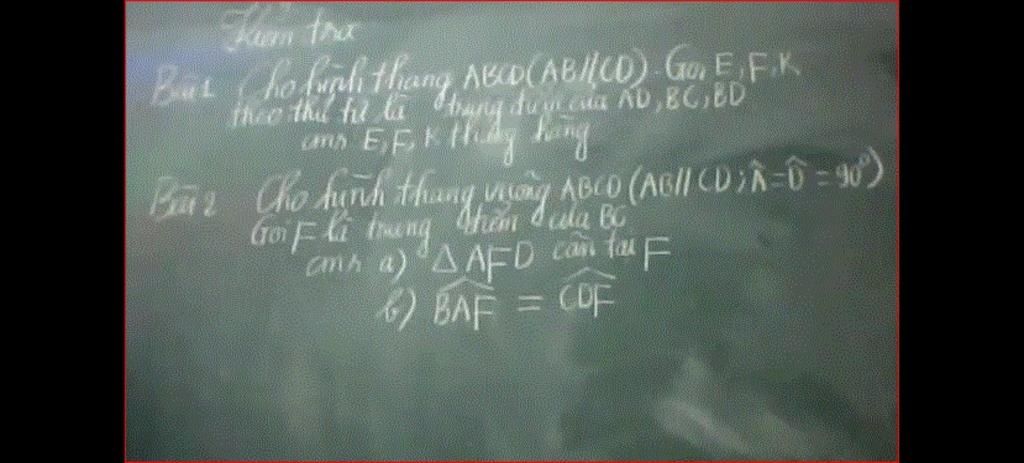 Kiểm tra
Bài 1 Cho hình thang ABCD (AB//CD). Gọi E, F, K
theo thứ tự là trung điểm của AD, BC, BD
cmr E, F, K thẳng hàng
Bài 2 Cho hình thang vuông ABCD (AB// CD; Â = D̂ = 90°)
Gọi F là trung điểm của BC
cmr a) Δ AFD cân tại F
b) B͡AF = C͡DF